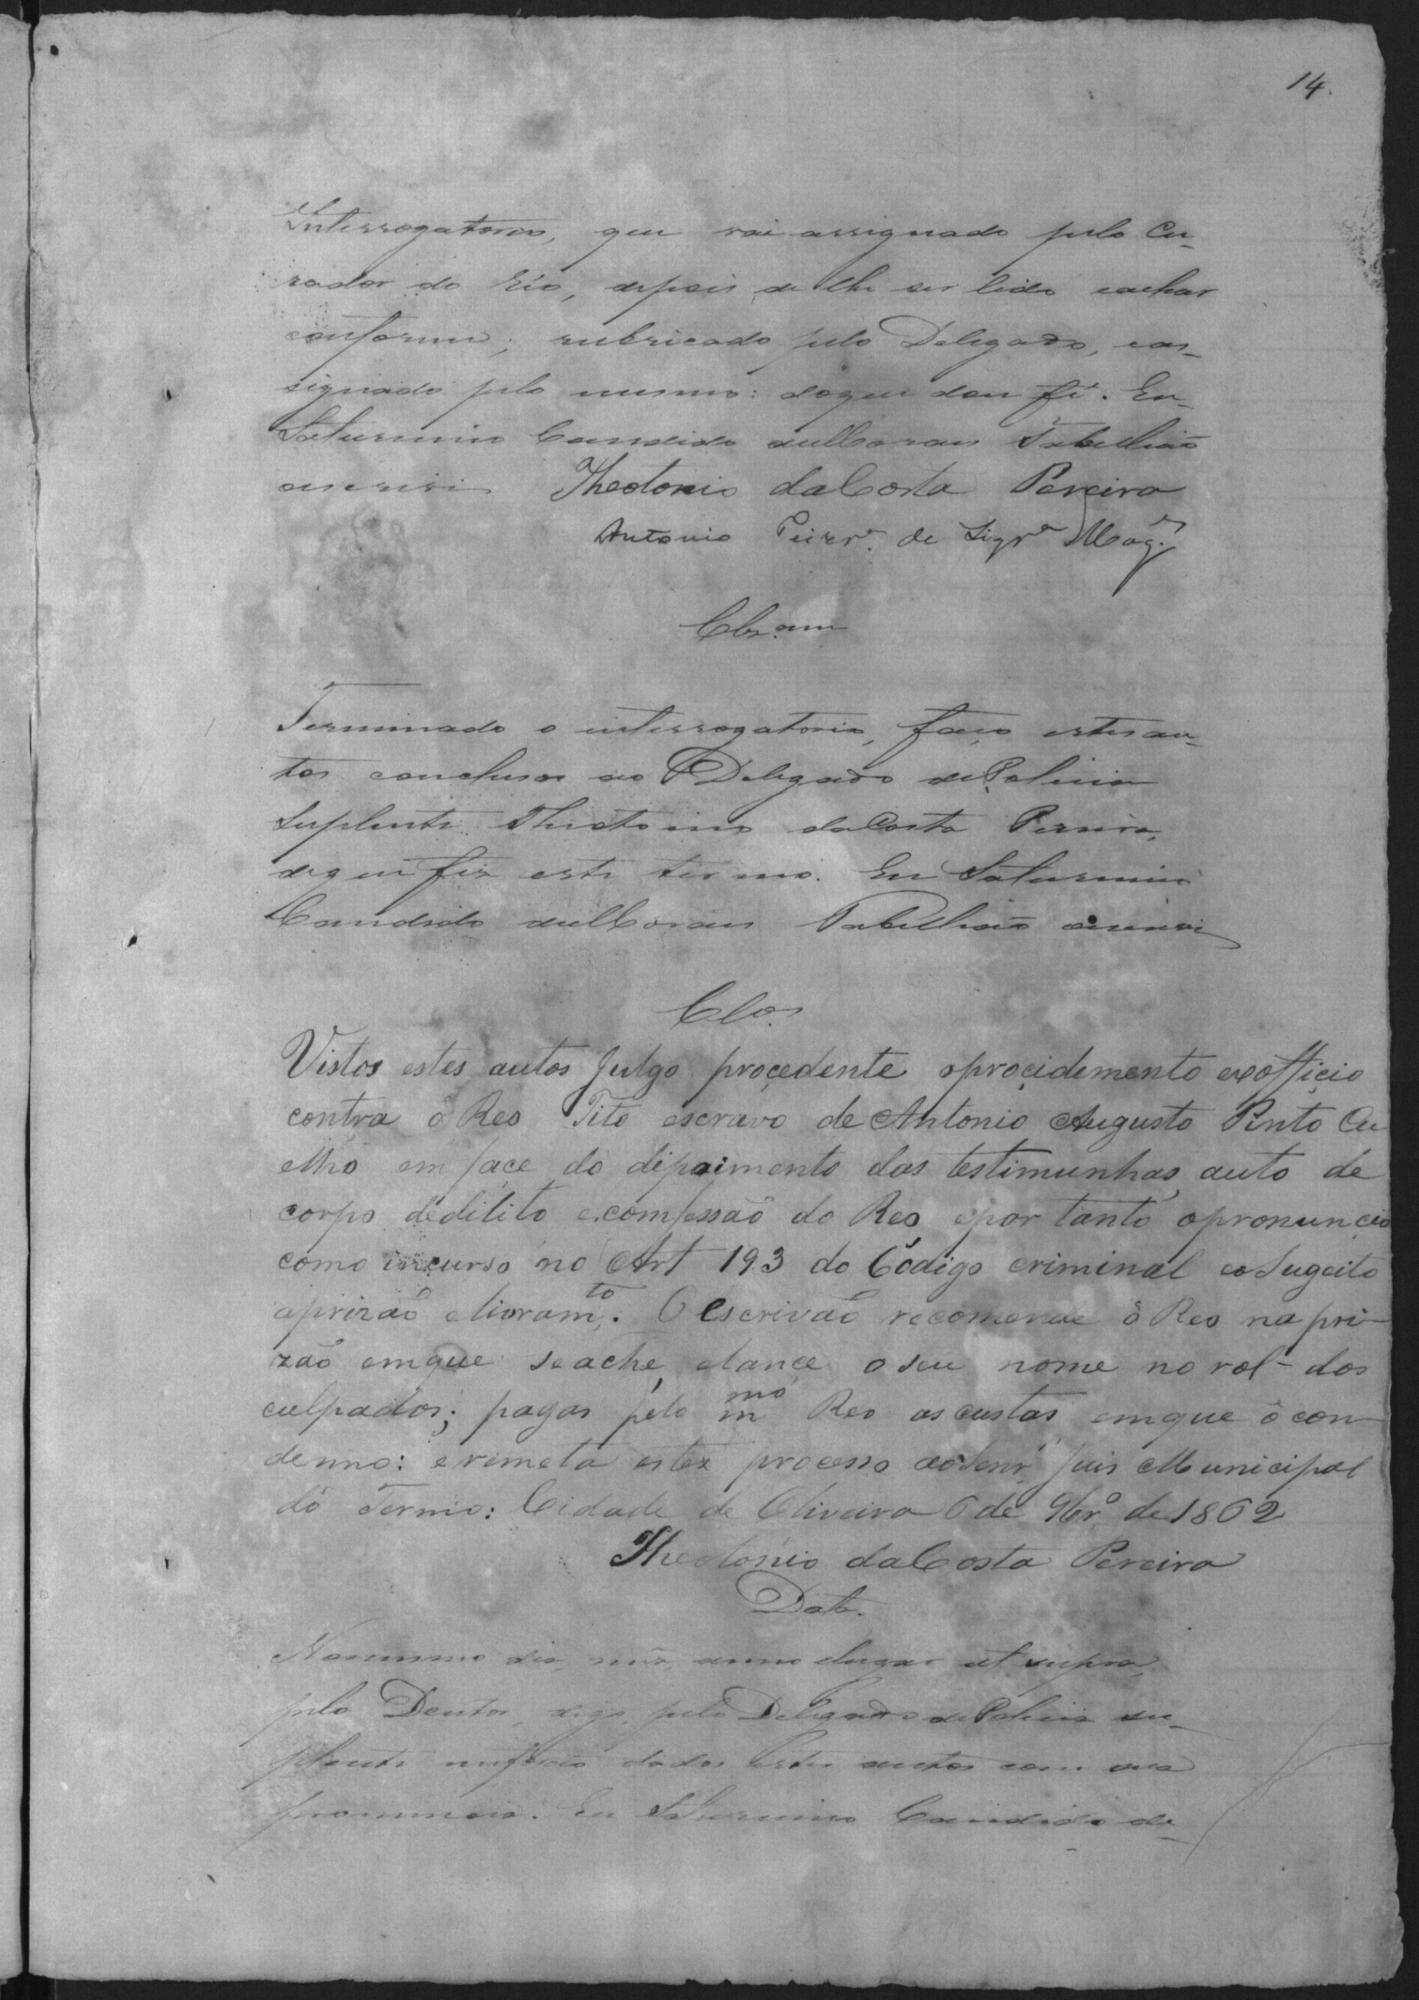 14.
Interrogatorio, que vai assignado pelo Cu-
rador do Réo, depois de lhe ser lido e achar
conforme; rubricado pelo Delegado, e as-
signado pelo mesmo: do que dou fé. Eu
Saturnino Candido de Moraes Tabellião
oescrevi Theotonio da Costa Pereira
Antonio de Siqrª Mag.es
Clz.am
Terminado o interrogatorio, faço estes au-
tos conclusos ao Delegado de Policia
Suplente Theotonio da Costa Pereira,
de que fiz este termo. Eu Saturnino
Candido de Moraes Tabellião oescrevi
Clos.
Vistos estes autos julgo procedente oprocidemento exofficio
contra ô Reo Tito escravo de Antonio Augusto Pinto Cu
elho em face do dipoimento das testimunhas, auto de
corpo dedilito e comfissaõ do Reo, epor tanto opronuncio
como incurso no Art 193 do Codigo criminal eo Sugeito
aprizaõ e livram.to. O Escrivaõ recomende ô Reo na pri-
zaõ emque se ache, elance o seu nome no rol dos
culpados; pagas pelo m.mo Reo as custas, emque ô con-
demno: e remeta estes processo ao Senr Juis Municipal
do Termo: Cidade de Oliveira 6 de 9brº de 1862
Theotonio da Costa Pereira
Data.
No mesmo dia, mez, anno elugar ut supra,
pelo Doutor, digo, pelo Delegado de Policia su-
plente me forão dados estes autos com sua
pronuncia. Eu Saturnino Candido de